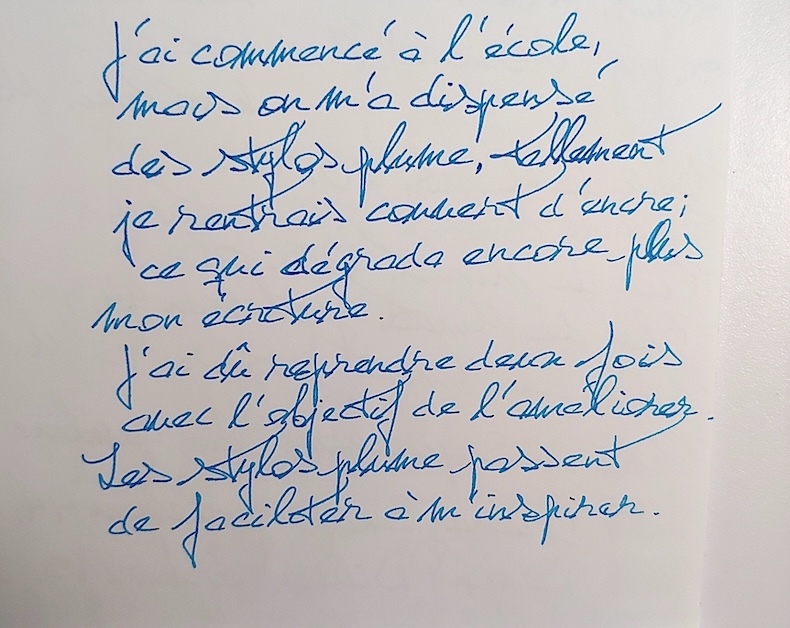 J'ai commencé à l'école,
mais on m'a dispensé
des stylos plume, tellement
je rentrais couvert d'encre;
ce qui dégrada encore plus
mon écriture.
J'ai dû reprendre deux fois
avec l'objectif de l'améliorer.
Les stylos plume passent
de faciliter à m'inspirer.